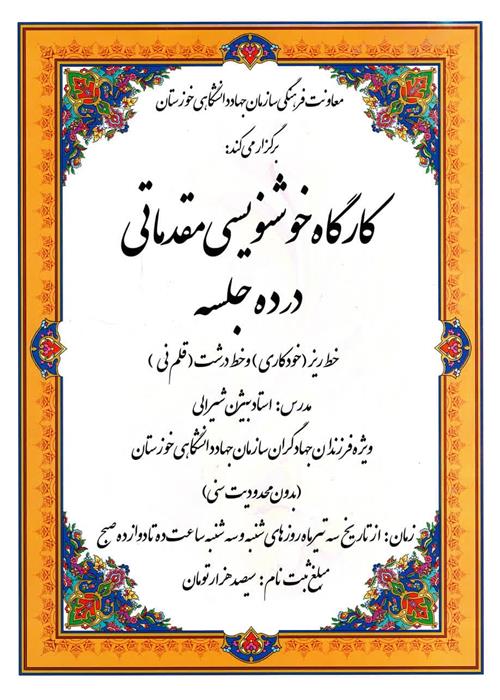 معاونت فرهنگی سازمان جهاد دانشگاهی خوزستان
برگزار می کند:
کارگاه خوشنویسی مقدماتی
در ده جلسه
خط ریز (خودکاری) و خط درشت (قلم نی)
مدرس: استاد بیژن شیرالی
ویژه فرزندان جهادگران سازمان جهاد دانشگاهی خوزستان
(بدون محدودیت سنی)
زمان: از تاریخ سه تیر ماه روزهای شنبه و سه شنبه ساعت ده تا دوازده صبح
مبلغ ثبت نام: سیصد هزار تومان